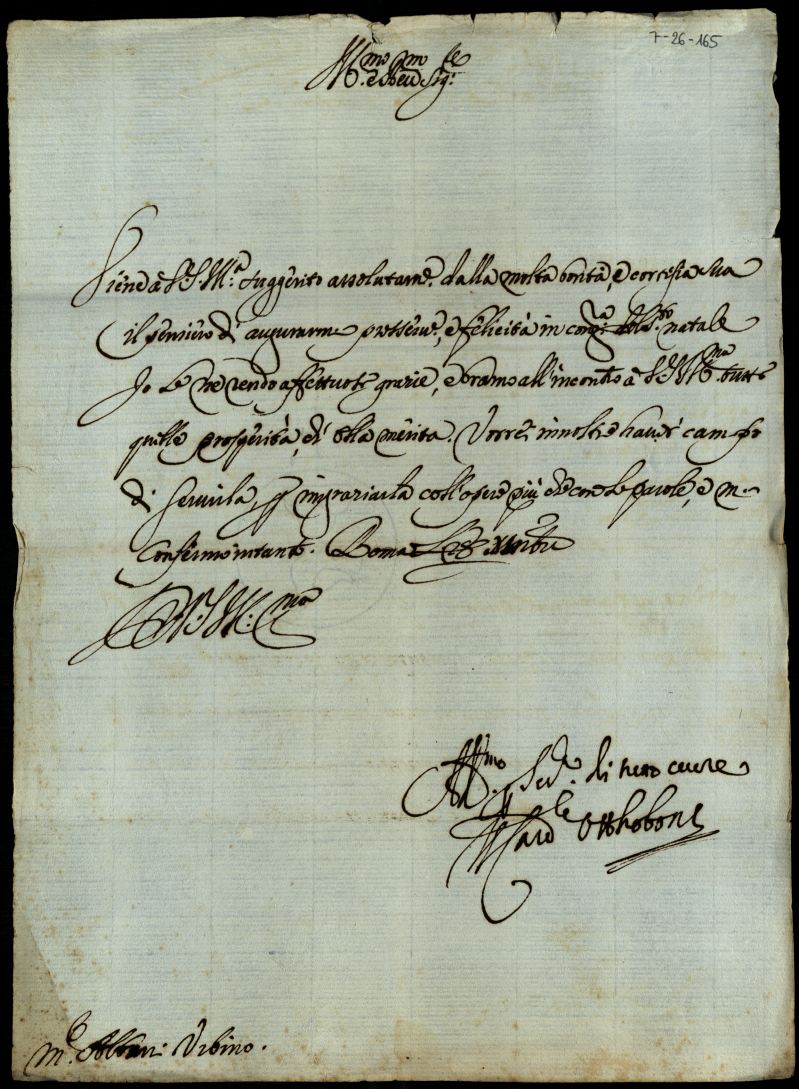 7-26-165
Ill.mo e Rev.mo Sig.re
Viene à V.S. Ill.ma suggerito assolutam.e dalla molta bontà, e cortesia sua
il pensiero di augurarme e felicità in natale
Io le ne rendo affettuose grazie, e bramo all'incontro à V.S. Ill.ma tutte
quelle prosperità, ch' ella merita. Vorrei inoltre haver campo
di servirla, p ringraziarla coll'opere più che con le parole, e m.
confermo intanto. Roma Xmbre
D V.S. Ill.ma
Aff.mo Ser.e di vero cuore
Il Card.le Otthoboni
M.r Albani Urbino.